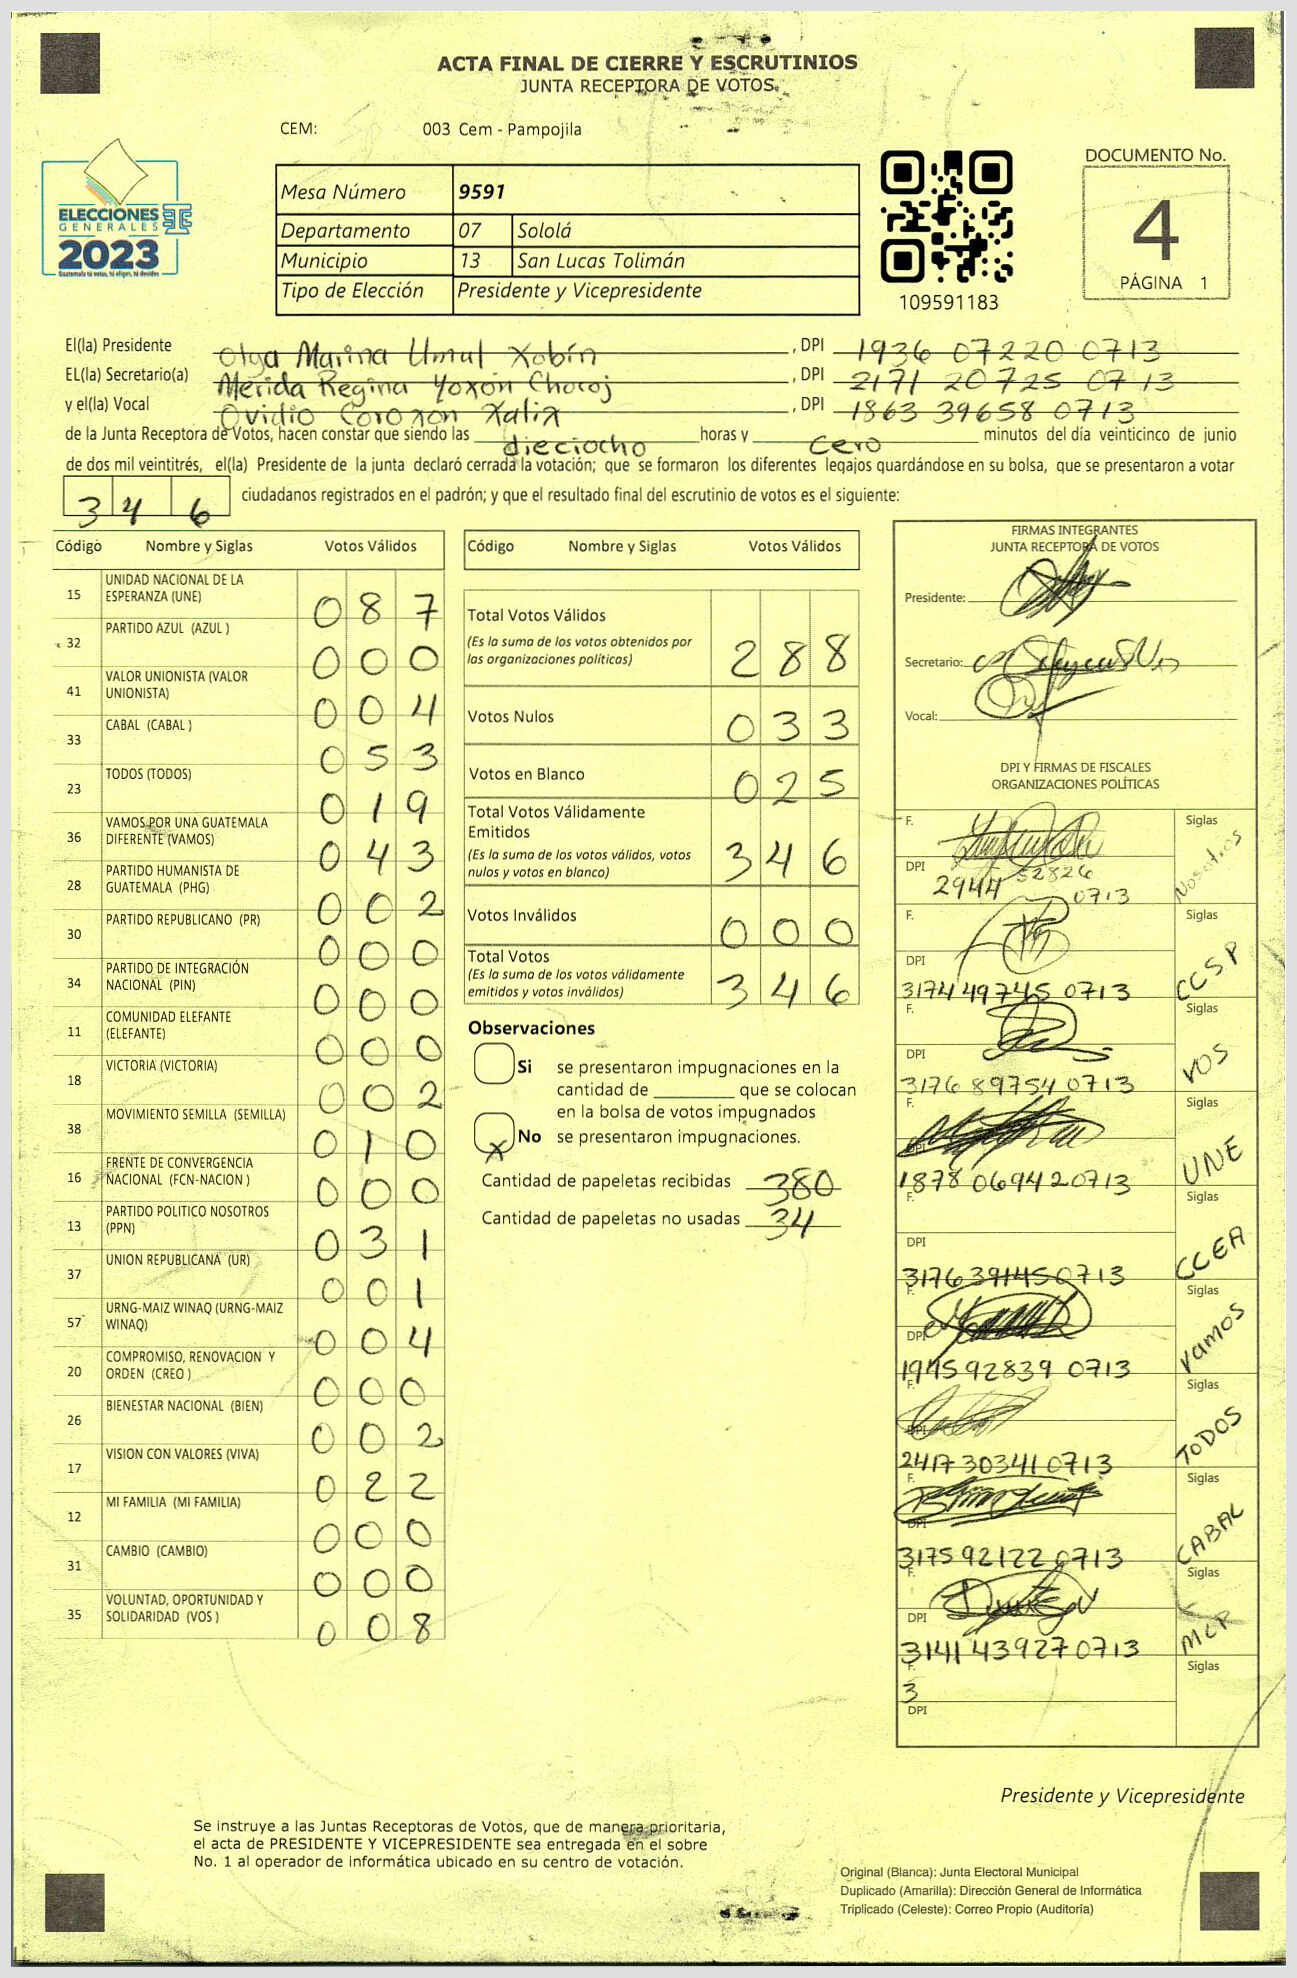 ACTA FINAL DE CIERRE Y ESCRUTINIOS
JUNTA RECEPTORA DE VOTOS
CEM: 003 Cem - Pampojila
ELECCIONES
GENERALES
2023
Guatemala tú votas, tú eliges, tú decides
Mesa Número 9591
Departamento 07 Sololá
Municipio 13 San Lucas Tolimán
Tipo de Elección Presidente y Vicepresidente
109591183
DOCUMENTO No.
4
PÁGINA 1
El(la) Presidente Olga Marina Umul Xobín , DPI 1936 07220 0713
EL(la) Secretario(a) Merida Regina Yoxon Chocoj , DPI 2171 20725 0713
y el(la) Vocal Ovidio Coroxon Xalix , DPI 1863 39658 0713
de la Junta Receptora de Votos, hacen constar que siendo las dieciocho horas y cero minutos del día veinticinco de junio
de dos mil veintitrés, el(la) Presidente de la junta declaró cerrada la votación; que se formaron los diferentes legajos quardándose en su bolsa, que se presentaron a votar
3 4 6 ciudadanos registrados en el padrón; y que el resultado final del escrutinio de votos es el siguiente:
Código Nombre y Siglas Votos Válidos
15 UNIDAD NACIONAL DE LA ESPERANZA (UNE) 0 8 7
32 PARTIDO AZUL (AZUL ) 0 0 0
41 VALOR UNIONISTA (VALOR UNIONISTA) 0 0 4
33 CABAL (CABAL ) 0 5 3
23 TODOS (TODOS) 0 1 9
36 VAMOS POR UNA GUATEMALA DIFERENTE (VAMOS) 0 4 3
28 PARTIDO HUMANISTA DE GUATEMALA (PHG) 0 0 2
30 PARTIDO REPUBLICANO (PR) 0 0 0
34 PARTIDO DE INTEGRACIÓN NACIONAL (PIN) 0 0 0
11 COMUNIDAD ELEFANTE (ELEFANTE) 0 0 0
18 VICTORIA (VICTORIA) 0 0 2
38 MOVIMIENTO SEMILLA (SEMILLA) 0 1 0
16 FRENTE DE CONVERGENCIA NACIONAL (FCN-NACION ) 0 0 0
13 PARTIDO POLITICO NOSOTROS (PPN) 0 3 1
37 UNION REPUBLICANA (UR) 0 0 1
57 URNG-MAIZ WINAQ (URNG-MAIZ WINAQ) 0 0 4
20 COMPROMISO, RENOVACION Y ORDEN (CREO ) 0 0 0
26 BIENESTAR NACIONAL (BIEN) 0 0 2
17 VISION CON VALORES (VIVA) 0 2 2
12 MI FAMILIA (MI FAMILIA) 0 0 0
31 CAMBIO (CAMBIO) 0 0 0
35 VOLUNTAD, OPORTUNIDAD Y SOLIDARIDAD (VOS ) 0 0 8
Código Nombre y Siglas Votos Válidos
Total Votos Válidos
(Es la suma de los votos obtenidos por
las organizaciones políticas) 2 8 8
Votos Nulos 0 3 3
Votos en Blanco 0 2 5
Total Votos Válidamente
Emitidos
(Es la suma de los votos válidos, votos
nulos y votos en blanco) 3 4 6
Votos Inválidos 0 0 0
Total Votos
(Es la suma de los votos válidamente
emitidos y votos inválidos) 3 4 6
Observaciones
Si se presentaron impugnaciones en la
cantidad de ________ que se colocan
en la bolsa de votos impugnados
x No se presentaron impugnaciones.
Cantidad de papeletas recibidas 380
Cantidad de papeletas no usadas 34
FIRMAS INTEGRANTES
JUNTA RECEPTORA DE VOTOS
Presidente:
Secretario:
Vocal:
DPI Y FIRMAS DE FISCALES
ORGANIZACIONES POLÍTICAS
F. Siglas
DPI 2944 52826 0713 Nosotros
F. Siglas
DPI 3174 49745 0713 CCSP
F. Siglas
DPI 3176 89754 0713 VOS
F. Siglas
DPI 1878 06942 0713 UNE
F. Siglas
DPI 3176 39145 0713 CCEA
F. Siglas
DPI 1945 92839 0713 Vamos
F. Siglas
DPI 2417 30341 0713 TODOS
F. Siglas
DPI 3175 92122 0713 CABAL
F. Siglas
DPI 3141 43927 0713 MLP
F. Siglas
3
DPI
Presidente y Vicepresidente
Se instruye a las Juntas Receptoras de Votos, que de manera prioritaria,
el acta de PRESIDENTE Y VICEPRESIDENTE sea entregada en el sobre
No. 1 al operador de informática ubicado en su centro de votación.
Original (Blanca): Junta Electoral Municipal
Duplicado (Amarilla): Dirección General de Informática
Triplicado (Celeste): Correo Propio (Auditoría)